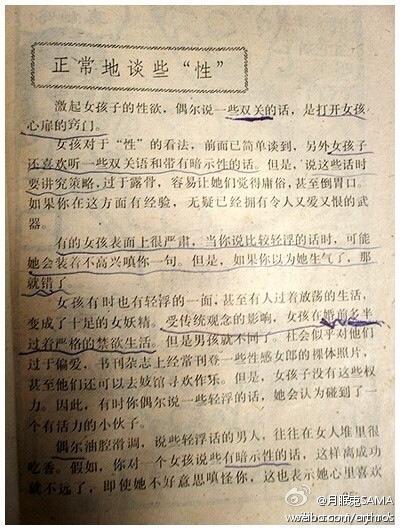 正常地谈些“性”
激起女孩子的性欲，偶尔说一些双关的话，是打开女孩
心扉的窍门。
女孩对于“性”的看法，前面已简单谈到，另外女孩子
还喜欢听一些双关语和带有暗示性的话。但是，说这些话时
要讲究策略，过于露骨，容易让她们觉得庸俗，甚至倒胃口。
如果你在这方面有经验，无疑已经拥有令人又爱又恨的武
器。
有的女孩表面上很严肃，当你说比较轻浮的话时，可能
她会装着不高兴嗔你一句。但是，如果你以为她生气了，那
就错了
女孩有时也有轻浮的一面，甚至有人过着放荡的生活，
变成了十足的女妖精。受传统观念的影响，女孩在婚前多半
过着严格的禁欲生活。但是男孩就不同了。社会似乎对他们
过于偏爱，书刊杂志上经常刊登一些性感女郎的裸体照片，
甚至他们还可以去妓馆寻欢作乐。但是，女孩子没有这些权
力。因此，有时你偶尔说一些轻浮的话，她会认为碰到了一
个有活力的小伙子。
偶尔油腔滑调，说些轻浮话的男人，往往在女人堆里很
吃香。假如，你对一个女孩说些有暗示性的话，这样离成功
就不远了，即使她不好意思嗔怪你，这也表示她心里喜欢
@月眠兔SAMA